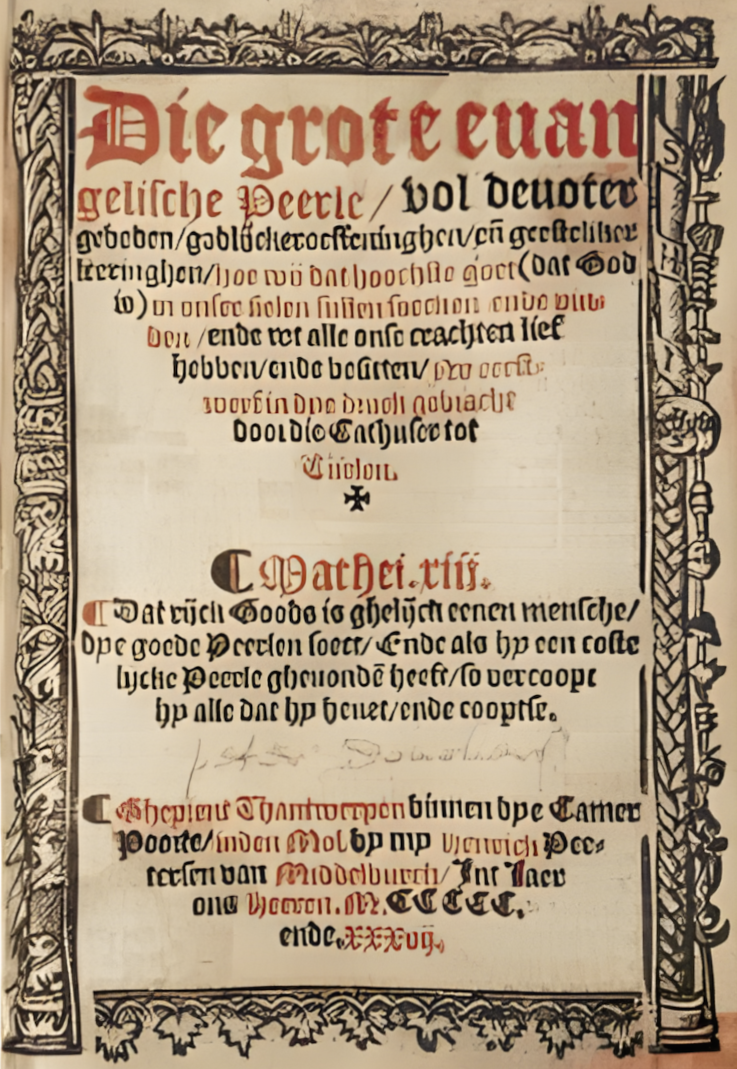 Die grote euan
gelische Peerle / vol deuoter
geboden / godlijcker oeffeninghen / en̄ geesteliker
leeringhen / hoe wij dat hoochste goet (dat God
is) in onser sielen sullen soecken ende vin
den / ende wt alle onse crachten lief
hebben / ende besitten /
werf in dye druck gebracht
door die Cathuser tot
Cuelen.
Mathei. xiij.
Dat rijck Goods is ghelijck eenen mensche /
dye goede Peerlen soect / Ende als hy een coste
lycke Peerle gheuondē heeft / so vercoopt
hy alle dat hy heuet / ende cooptse.
Gheprent Thantwerpen binnen dye Camer
Poorte / inden Mol by my Henrick Pee-
tersen van Middelburch / Int Iaer
ons Heeren. M. CCCCC.
ende. XXXvij.
S
H
I